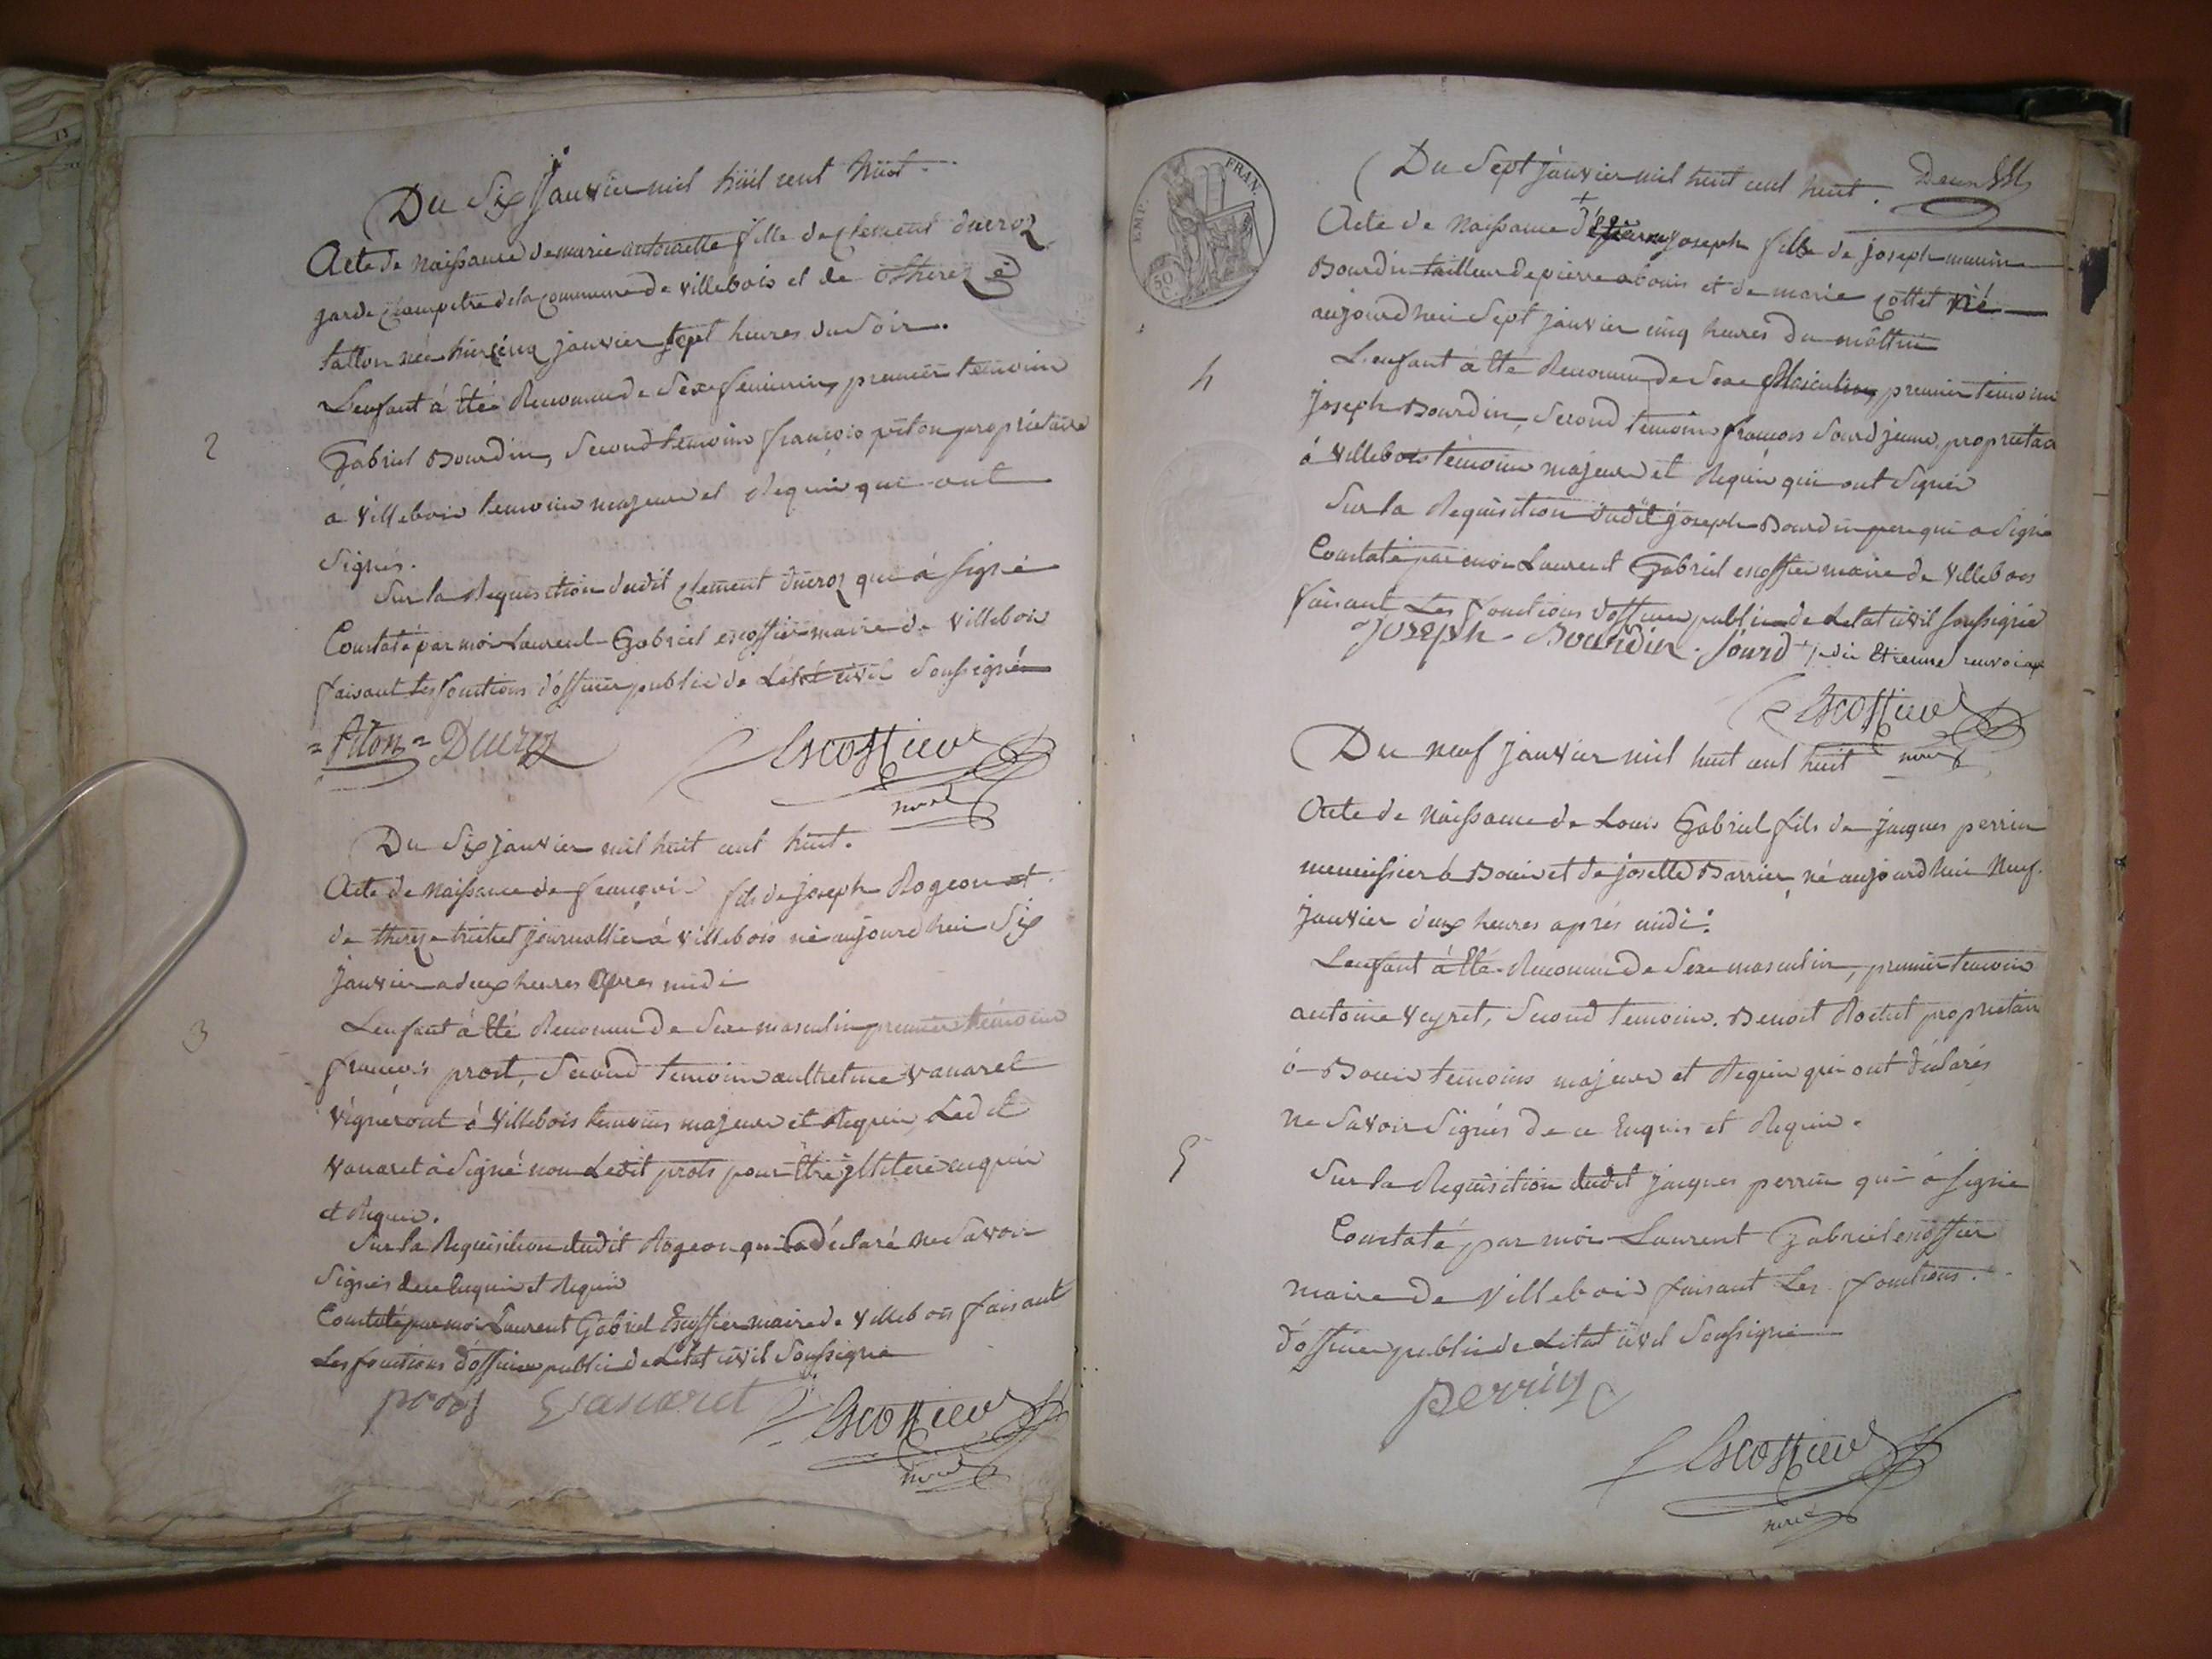 Du Six Janvier mil huit cent huit.
Acte de Naissance de marie antoinette fille de Clement ducroz
garde champetre de la commune de villebois et de Therez e
tatton née hier cinq janvier sept heures du Soir.
L'enfant à été Reconnu de Sexe feminin, premier temoin
2
Gabriel Bourdin, Second temoin françois piton proprietaire
a Villebois temoins majeurs et Requis qui ont
Signés.
Sur la Requisition dudit Clement Ducroz qui à Signé
Constaté par moi Laurent Gabriel escoffier maire de Villebois
faisant les fonctions d'officier public de Létat civil Soussigné
= Piton = Ducroz Escoffier
maire
Du Six janvier mil huit cent huit.
Acte de Naissance de françois fils de joseph Rogeon et
de therese trichet journallier à Villebois né aujourd'hui Six
janvier a deux heures apres midi
3
L'enfant à été Reconnu de Sexe masculin premier témoin
françois prost, Second temoin anthelme vanaret
vigneront à Villebois temoins majeurs et Requis, Ledit
vanaret à Signé non Ledit prots pour être illitere enquis
et Requis.
Sur la Requisition dudit Rogeon qui a déclaré ne Savoir
Signés de ce Enquis et Requis
Constaté par moi Laurent Gabriel Escoffier maire de Villebois faisant
Les fonctions d'officier public de Létat civil Soussigné
prots Vanaret Escoffier
maire
EMP. FRAN.
50
Du Sept janvier mil huit cent huit. Deux
Acte de Naissance d' joseph fils de joseph marin
Bourdin tailleur de pierre a bouis et de marie cottet né
aujourd'hui Sept janvier cinq heures du mattin
4
L'enfant à été Reconnu de Sexe Masculin, premier temoin
joseph Bourdin, Second temoin françois Sourd jeune, proprietai
à Villebois temoins majeurs et Requis qui ont Signés
Sur la Requisition dudit joseph Bourdin pere qui a Signé
Constaté par moi Laurent Gabriel escoffier maire de Villebois
faisant Les fonctions d'officier public de Letat civil Soussigné
Joseph Bourdin. Sourd + je dis Etienne renvoi ap
Escoffier
maire
Du neuf janvier mil huit cent huit
Acte de Naissance de Louis Gabriel fils de jacques perrin
menuissier à Bouis et de josette Barrier, né aujourd'hui Neuf
janvier deux heures aprés midi.
L'enfant à été Reconnu de Sexe masculin, premier temoin
antoine veyret, Second temoin. Benoit Rochet proprietair
à Bouis temoins majeurs et Requis qui ont déclarés
ne Savoir Signés de ce Enquis et Requis.
5
Sur la Requisition dudit jacques perrin qui à Signé
Constaté par moi Laurent Gabriel escoffier
maire de Villebois faisant Les fonctions
d'officier public de Letat civil Soussigné
perrin
Escoffier
maire